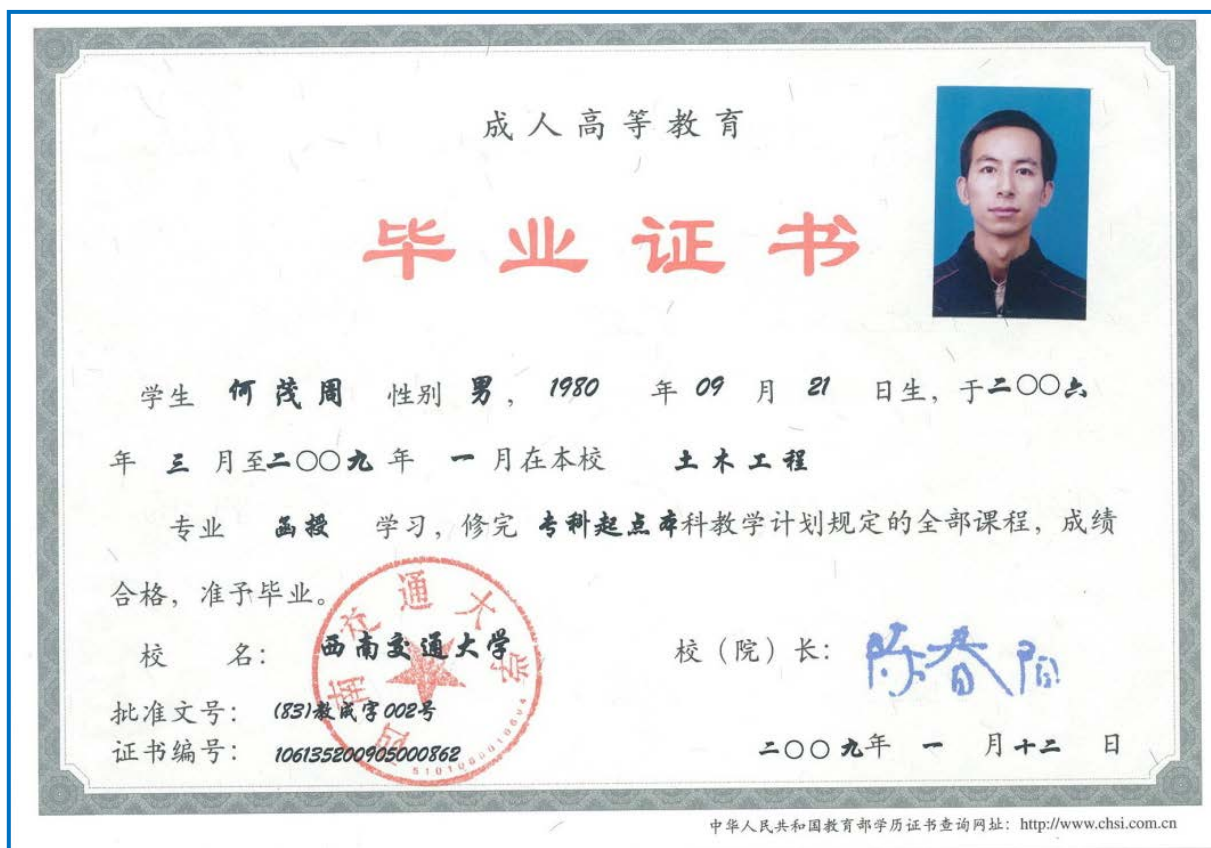 成人高等教育
毕业证书
学生 何茂周 性别 男, 1980 年 09 月 21 日生, 于二〇〇六
年 三 月至二〇〇九 年 一 月在本校 土木工程
专业 函授 学习, 修完 专科起点本科教学计划规定的全部课程, 成绩
合格, 准予毕业。
校 名: 西南交通大学
校（院）长: 陈春阳
批准文号: (83)教成字002号
证书编号: 106135200905000862
二〇〇九年 一 月十二 日
西南交通大学
5101060010604
中华人民共和国教育部学历证书查询网址: http://www.chsi.com.cn